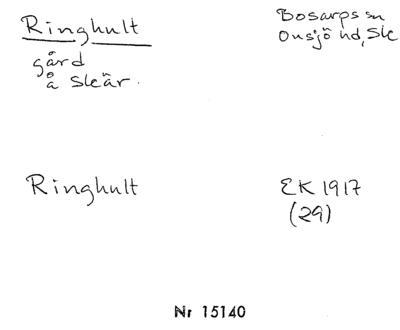 Ringhult
gård
å Skår.
Bosarps sn
Onsjö hd, Sk
Ringhult
EK 1917
(29)
Nr 15140